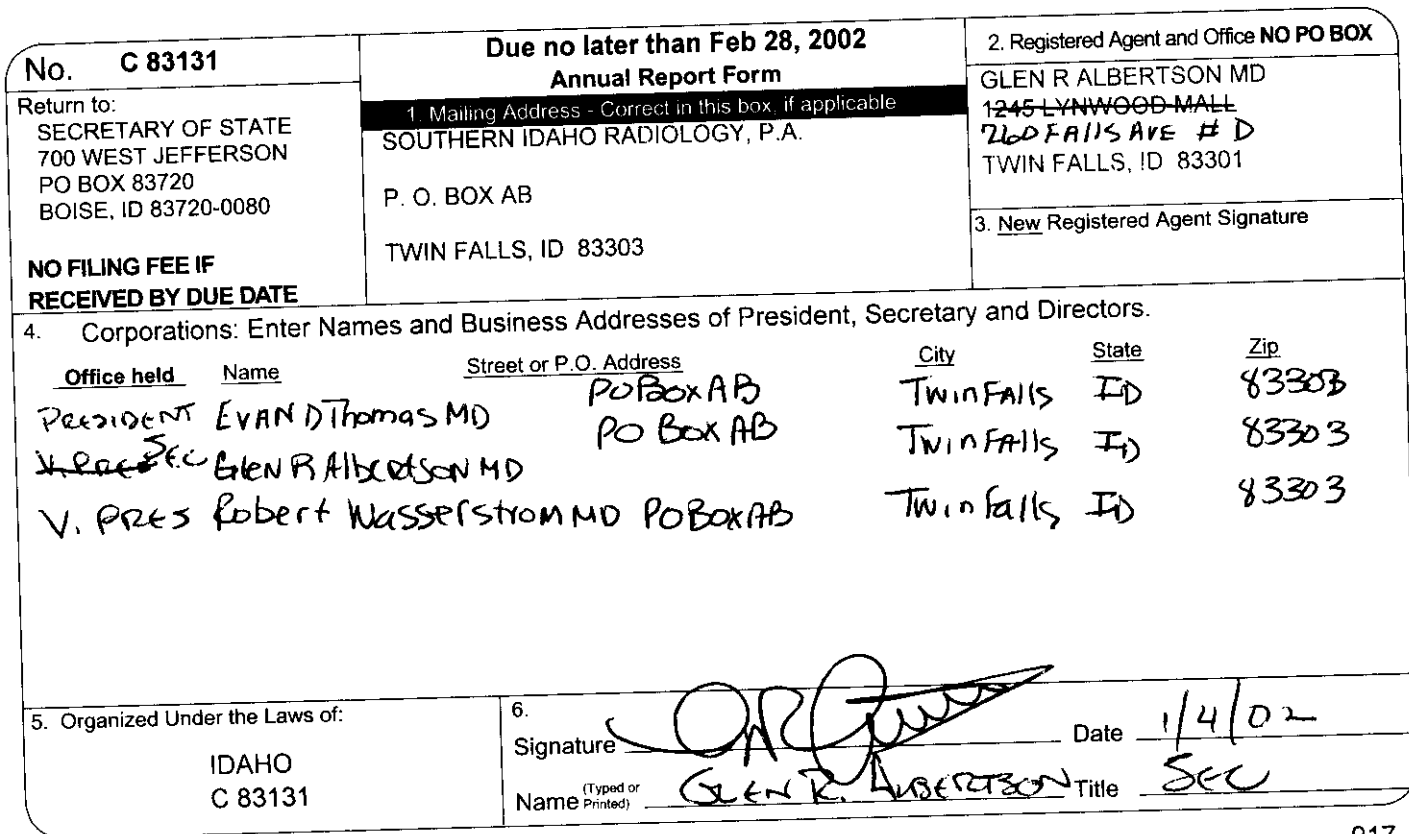 No. C 83131
Return to:
SECRETARY OF STATE
700 WEST JEFFERSON
PO BOX 83720
BOISE, ID 83720-0080
NO FILING FEE IF
RECEIVED BY DUE DATE
Due no later than Feb 28, 2002
Annual Report Form
1. Mailing Address - Correct in this box, if applicable
SOUTHERN IDAHO RADIOLOGY, P.A.
P. O. BOX AB
TWIN FALLS, ID 83303
2. Registered Agent and Office NO PO BOX
GLEN R ALBERTSON MD
1245 LYNWOOD MALL
260 FAllS AVE # D
TWIN FALLS, ID 83301
3. New Registered Agent Signature
4. Corporations: Enter Names and Business Addresses of President, Secretary and Directors.
Office held Name Street or P.O. Address City State Zip
PRESIDENT EVAN D Thomas MD PO Box AB Twin FAlls ID 83303
V. PRES SEC GleN R AlbertsoN MD PO Box AB Twin FAlls ID 83303
V. PRES Robert Wasserstrom MD PO Box AB Twin Falls ID 83303
5. Organized Under the Laws of:
IDAHO
C 83131
6.
Signature Date 1/4/02
Name (Typed or Printed) GLEN R. ALBERTSON Title SEC